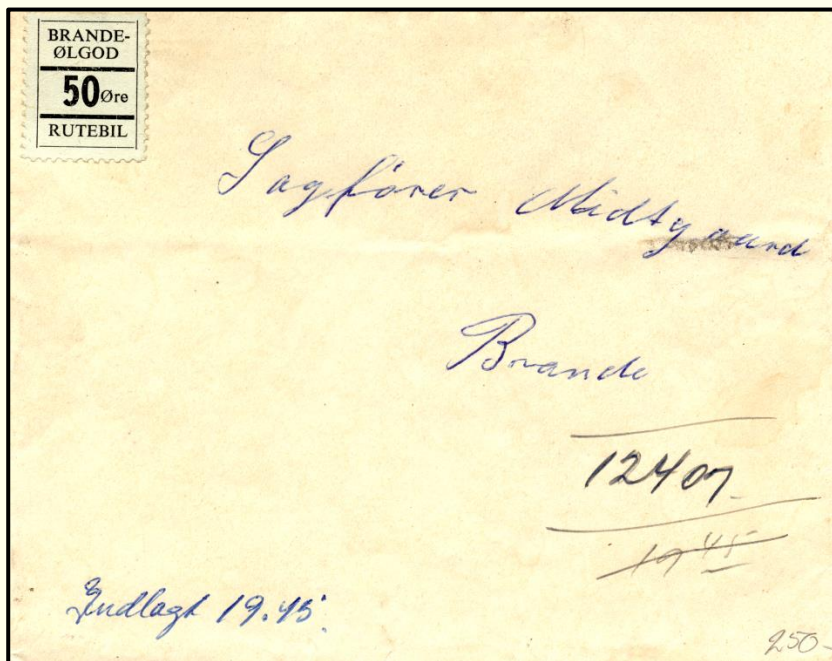 BRANDE-
ØLGOD
50 Øre
RUTEBIL
Sagfører Midtgaard
Brande
12407
19 45
Indlagt 19.45
250-